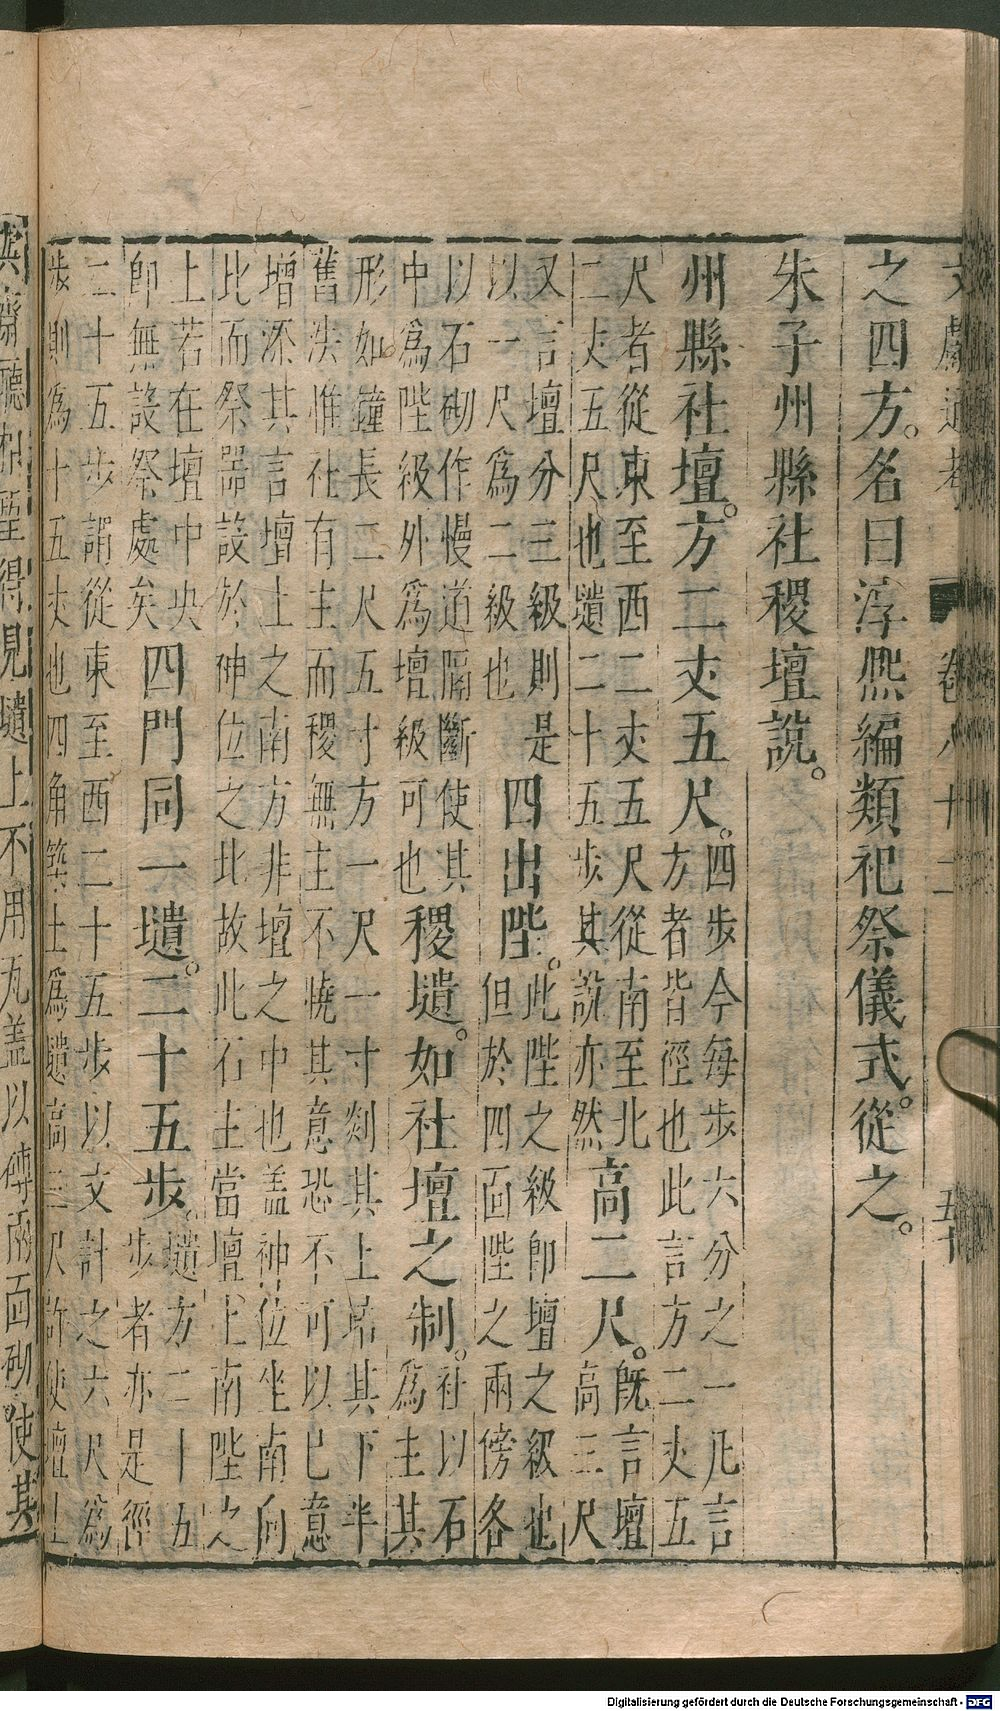 文獻通考 卷八十二 五十
之四方。名曰淳熙編類祀祭儀式。從之。
朱子州縣社稷壇說。
州縣社壇。方二丈五尺。四步今每步六分之一凡言
方者皆徑也此言方二丈五
尺者從東至西二丈五尺從南至北
二丈五尺也壝二十五步其說亦然
高二尺。既言壇
高三尺
又言壇分三級則是
以一尺爲二級也
四出陛。此陛之級卽壇之級也
但於四面陛之兩傍各
以石砌作慢道隔斷使其
中爲陛級外爲壇級可也
稷壝。如社壇之制。社以石
爲主其
形如鐘長二尺五寸方一尺一寸剡其上培其下半
舊法惟社有主而稷無主不曉其意恐不可以已意
增添其言壇上之南方非壇之中也蓋神位坐南向
比而祭器設於神位之北故此石主當壇上南陛之
上若在壇中央
卽無設祭處矣
四門同一壝。二十五步。壝方二十五
步者亦是徑
二十五步謂從東至西二十五步以丈計之六尺爲
步則爲十五丈也四角築土爲壝高三尺許使壇上
與齋廳相望得見壝上不用瓦蓋以磚兩面砌使其
Digitalisierung gefördert durch die Deutsche Forschungsgemeinschaft - DFG